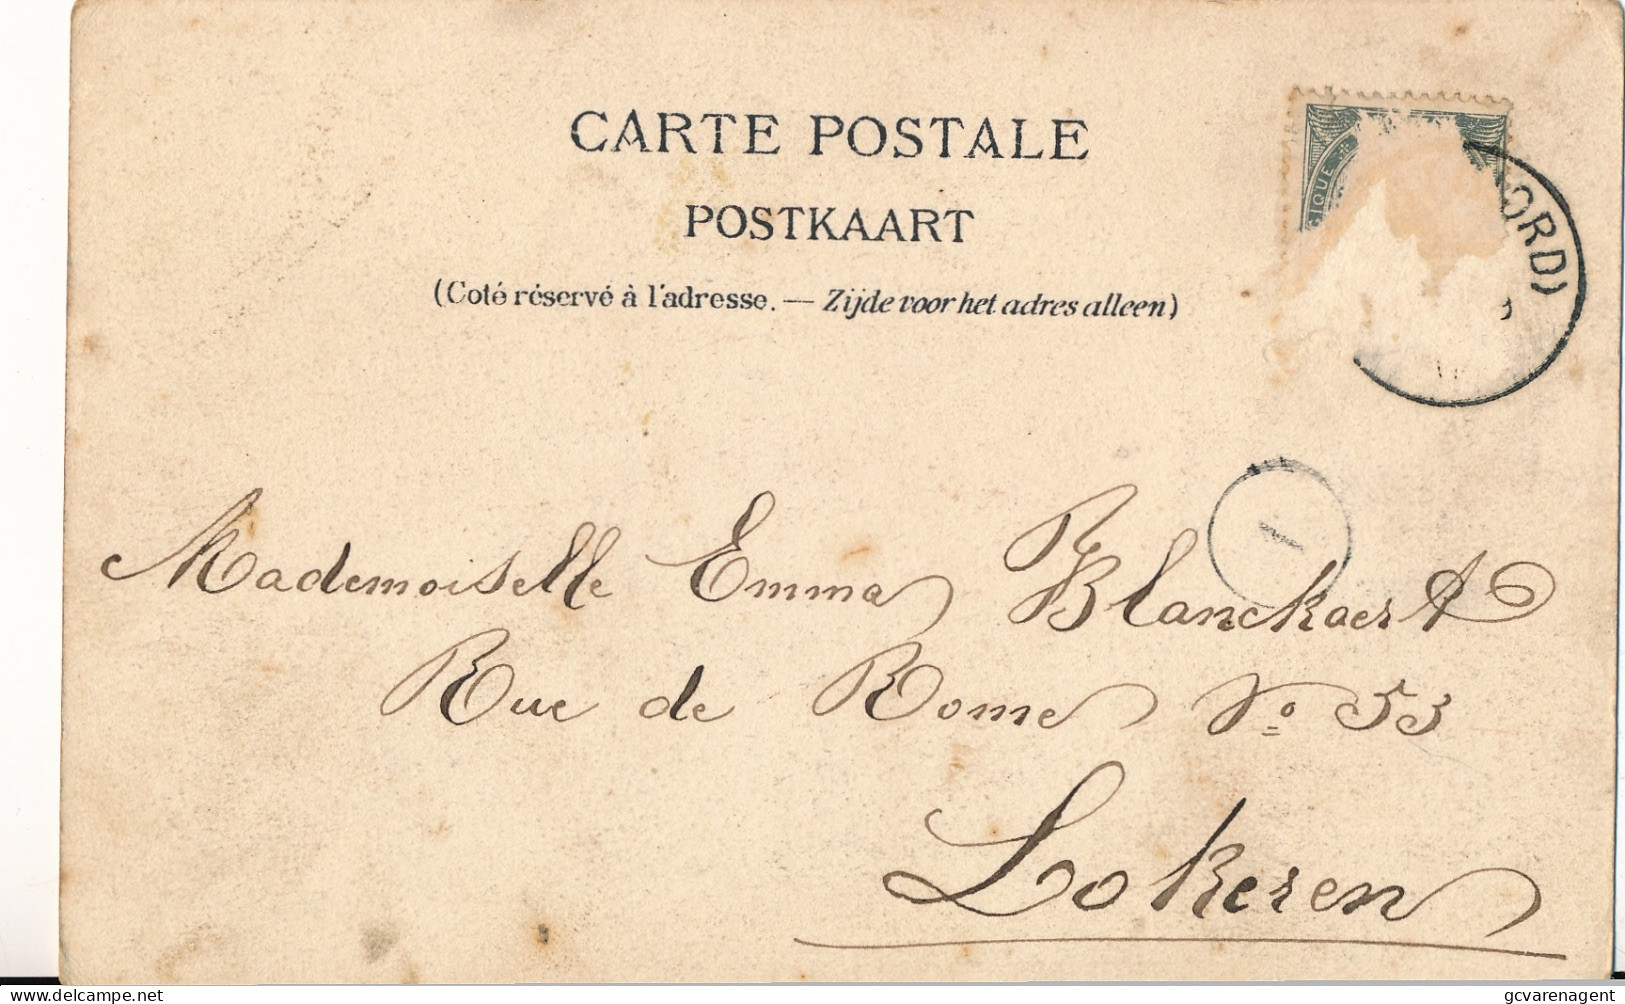 CARTE POSTALE
POSTKAART
(Coté réservé à l'adresse. — Zijde voor het adres alleen)
ORD)
1
Mademoiselle Emma Blanckaert
Rue de Rome No 53
Lokeren
delcampe.net
gcvarenagent